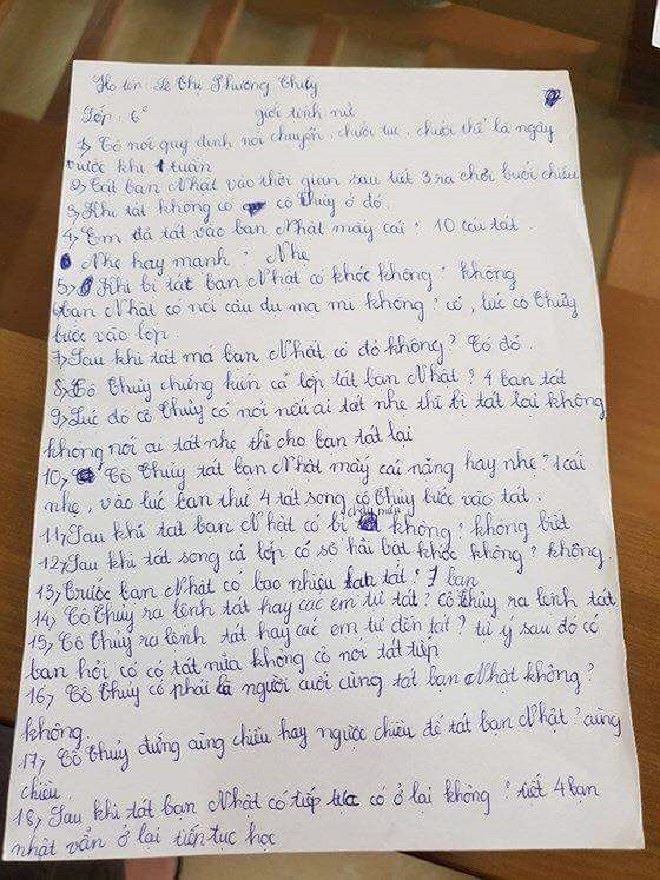 Họ tên: Lê Thị Phương Thùy
Lớp: 6² giới tính nữ
1, Cô nói quy định nói chuyện, chười tục, chười thề là ngày
trước khi 1 tuần
2, Tát bạn Nhật vào thời gian sau tiết 3 ra chơi buổi chiều
3, Khi tát không có cô Thủy ở đó.
4, Em đã tát vào bạn Nhật mấy cái? 10 cái tát.
Nhẹ hay mạnh? Nhẹ
5, Khi bị tát bạn Nhật có khóc không? không
6, bạn Nhật có nói câu du ma mi không? có, lúc cô Thủy
bước vào lớp.
7, Sau khi tát má bạn Nhật có đỏ không? Có đỏ.
8, Cô Thủy chứng kiến cả lớp tát bạn Nhật? 4 bạn tát
9, Lúc đó cô Thủy có nói nếu ai tát nhẹ thì bị tát lại không
không nói ai tát nhẹ thì cho bạn tát lại
10, Cô Thủy tát bạn Nhật mấy cái nặng hay nhẹ? 1 cái
nhẹ, vào lúc bạn thứ 4 tát song cô Thủy bước vào tát.
11, Sau khi tát bạn Nhật có bị chảy máu không? không biết
12, Sau khi tát song cả lớp có sợ hãi bật khóc không? không.
13, Trước bạn Nhật có bao nhiêu bạn tát? 7 bạn
14, Cô Thủy ra lệnh tát hay các em tự tát? Cô Thủy ra lệnh tát
15, Cô Thủy ra lệnh tát hay các em tự đến tát? tự ý sau đó có
bạn hỏi cô có tát nữa không cô nói tát tiếp
16, Cô Thủy có phải là người cuối cùng tát bạn Nhật không?
không.
17, Cô Thủy đứng cùng chiều hay ngược chiều để tát bạn Nhật? cùng
chiều.
18, Sau khi tát bạn Nhật có tiếp tục có ở lại không? tiết 4 bạn
nhật vẫn ở lại tiếp tục học